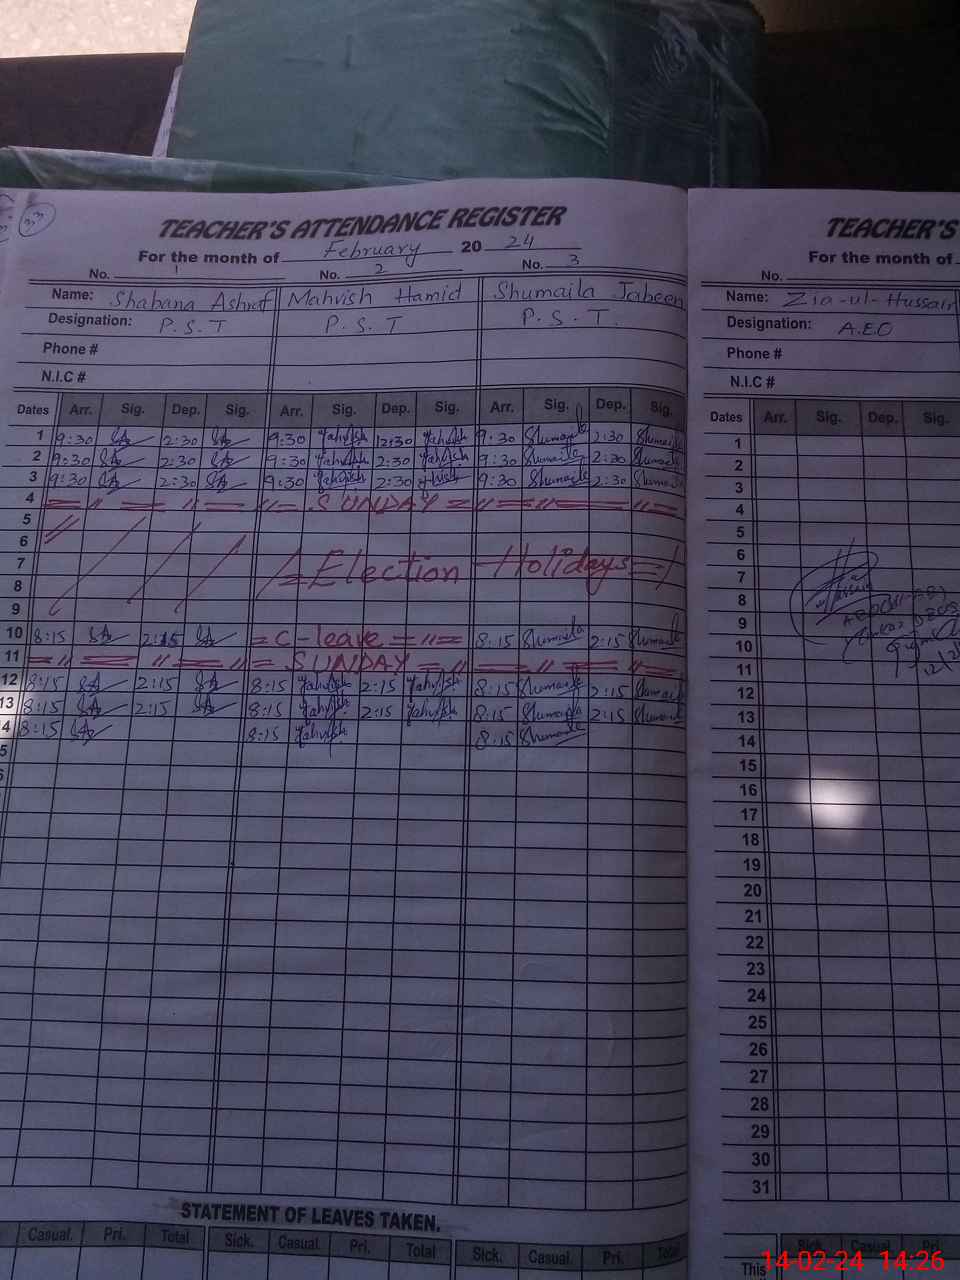 33
TEACHER'S ATTENDANCE REGISTER
For the month of February 20 24
No. 1 No. 2 No. 3
Name: Shabana Ashraf Mahvish Hamid Shumaila Jabeen
Designation: P.S.T P.S.T P.S.T.
Phone #
N.I.C #
Dates Arr. Sig. Dep. Sig. Arr. Sig. Dep. Sig. Arr. Sig. Dep. Sig.
1 9:30 SA 2:30 SA 9:30 Mahvish 2:30 Mahvish 9:30 Shumaila 2:30 Shumaila
2 9:30 SA 2:30 SA 9:30 Mahvish 2:30 Mahvish 9:30 Shumaila 2:30 Shumaila
3 9:30 SA 2:30 SA 9:30 Mahvish 2:30 Mahvish 9:30 Shumaila 2:30 Shumaila
4 SUNDAY
5
6
7 Election Holidays
8
9
10 8:15 SA 2:15 SA C-leave 8:15 Shumaila 2:15 Shumaila
11 SUNDAY
12 8:15 SA 2:15 SA 8:15 Mahvish 2:15 Mahvish 8:15 Shumaila 2:15 Shumaila
13 8:15 SA 2:15 SA 8:15 Mahvish 2:15 Mahvish 8:15 Shumaila 2:15 Shumaila
14 8:15 SA 8:15 Mahvish 8:15 Shumaila
5
STATEMENT OF LEAVES TAKEN.
Casual. Pri. Total Sick. Casual. Pri. Total Sick. Casual. Pri. Total
TEACHER'S
For the month of
No.
Name: Zia-ul-Hussain
Designation: A.E.O
Phone #
N.I.C #
Dates Arr. Sig. Dep. Sig.
1
2
3
4
5
6
7
8
9
10
11
12
13
14
15
16
17
18
19
20
21
22
23
24
25
26
27
28
29
30
31
Sick. Casual. Pri.
This
14-02-24 14:26